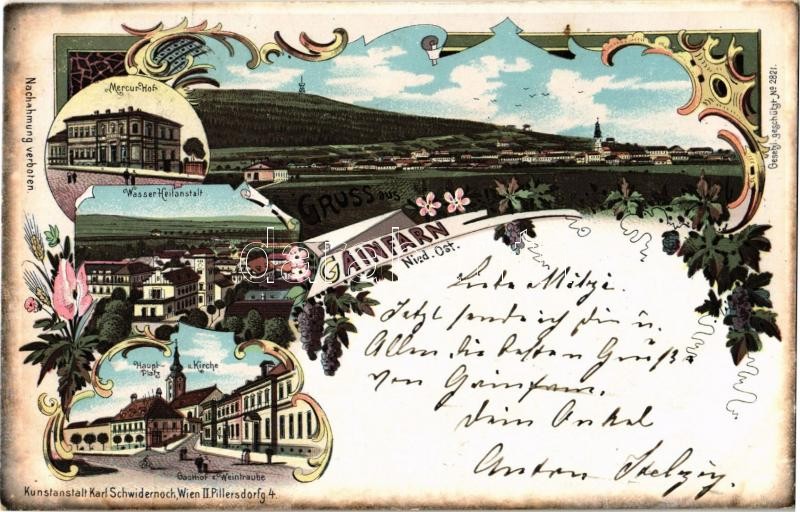 Mercur-Hof
Nachahmung verboten.
Gesetzl. geschützt. No 2821.
Wasser Heilanstalt
GRUSS aus
GAINFARN
Nied. Öst.
Haupt- u. Kirche
Platz
Gasthof z. Weintraube
Kunstanstalt Karl Schwidernoch, Wien II. Pillersdorfg. 4.
Liebe
Jetzt sende ich Dir u.
Allen die besten Grüße
von Gainfarn.
Dein Onkel
Anton